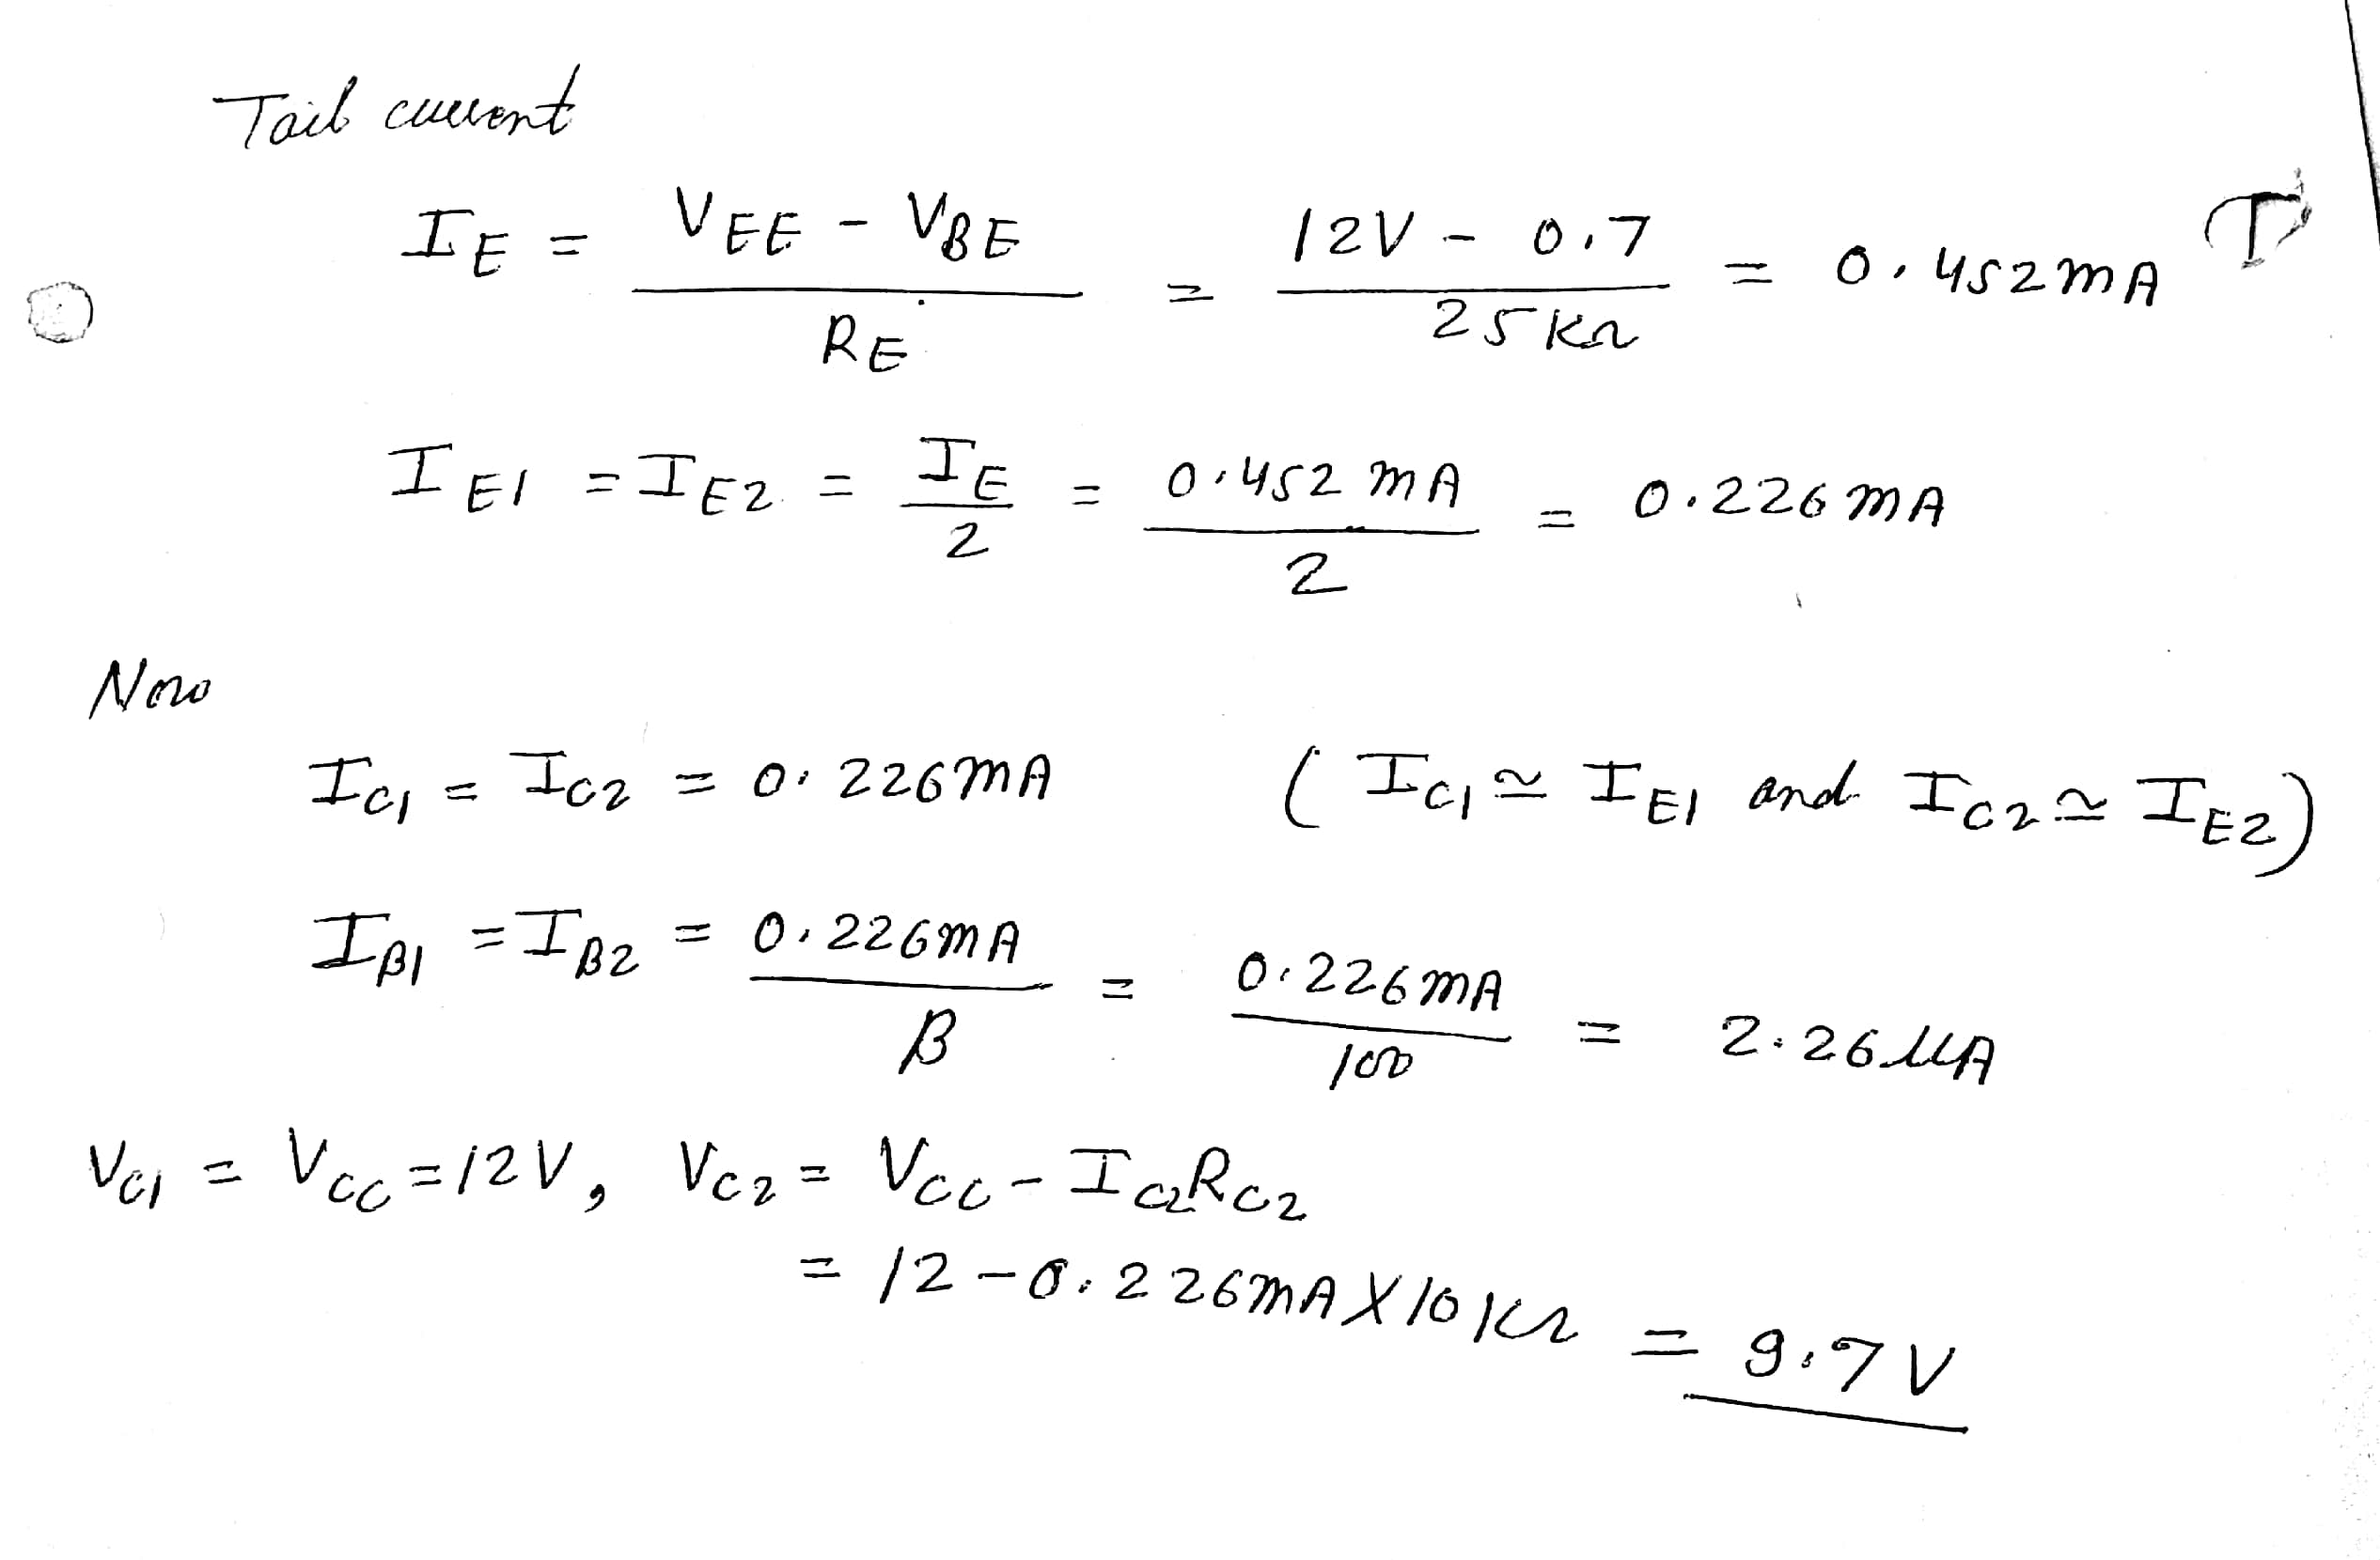 Tail current
I_E = (V_EE - V_BE) / R_E = (12V - 0.7) / 25KΩ = 0.452mA
I_E1 = I_E2 = I_E / 2 = 0.452 mA / 2 = 0.226mA
Now
I_C1 = I_C2 = 0.226mA ( I_C1 ≃ I_E1 and I_C2 ≃ I_E2)
I_B1 = I_B2 = 0.226mA / β = 0.226mA / 100 = 2.26μA
V_C1 = V_CC = 12V, V_C2 = V_CC - I_C2 R_C2
= 12 - 0.226mA X 10KΩ = 9.7V